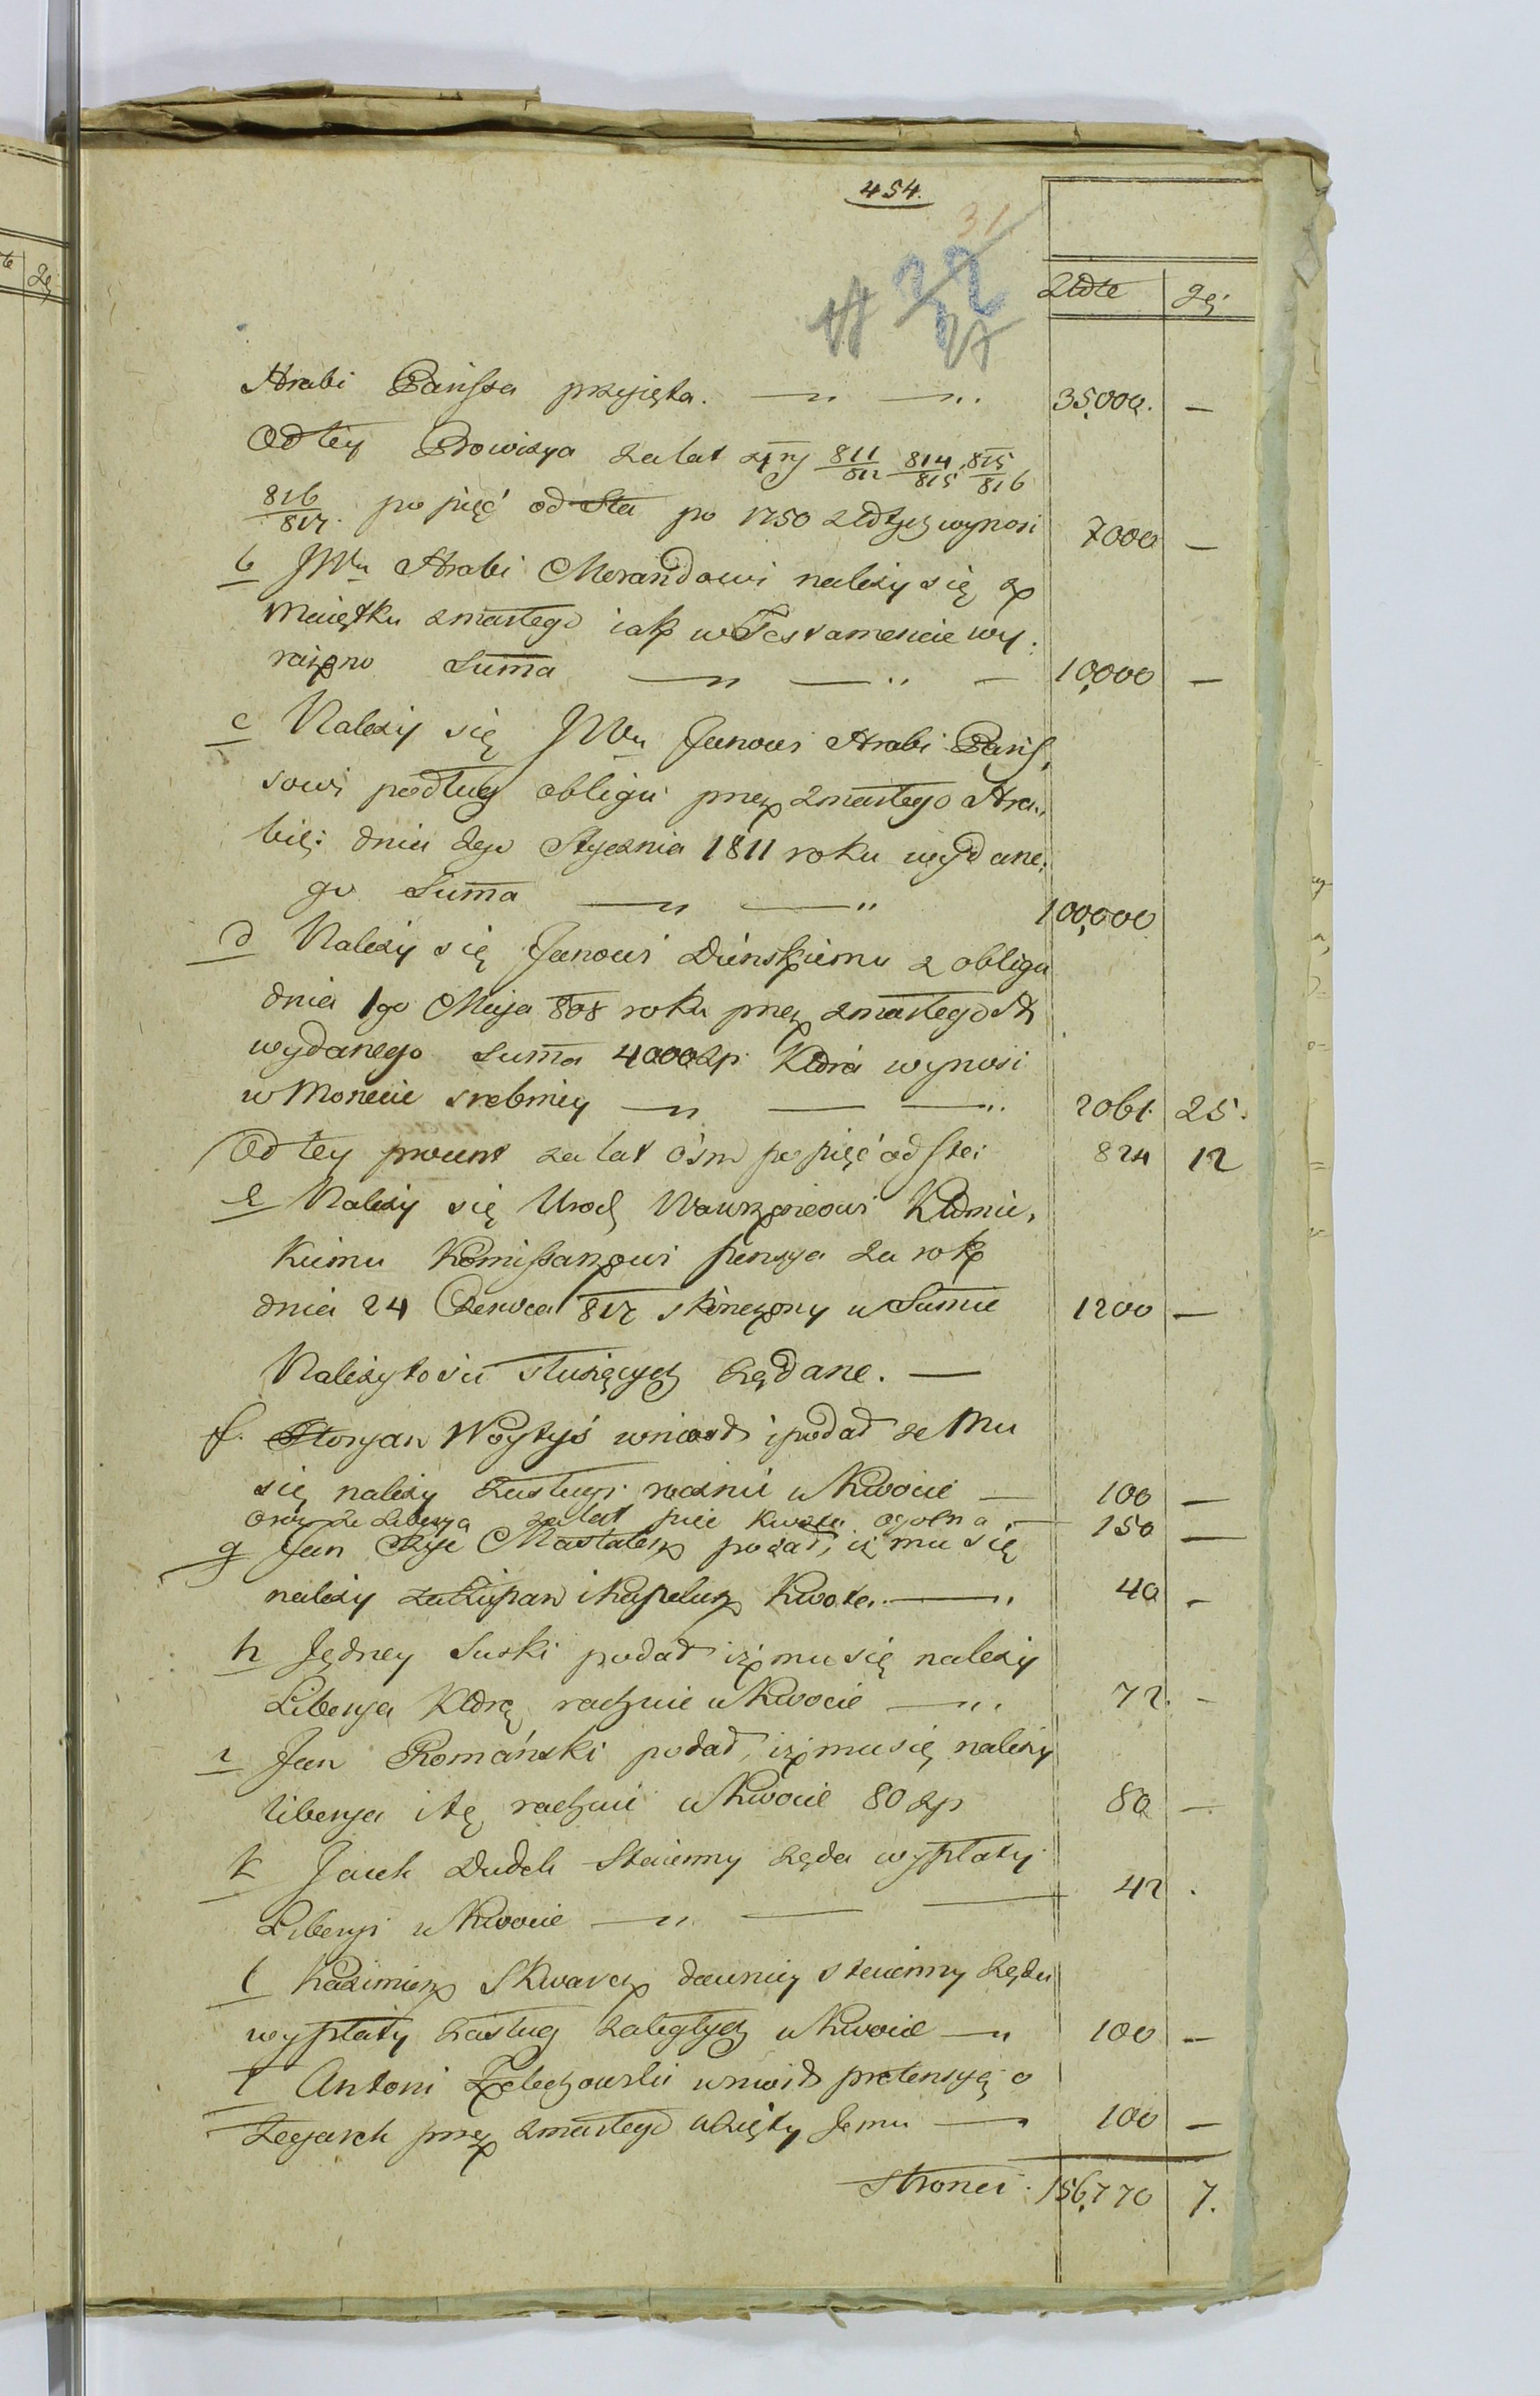 454.
31
32
27
Złote gr
Hrabi Parysa przyięta. — " — " 35,000. —
Od tey Prowizya za lat 811/812 814/815 815/816
816/817. po pięć od Sta po 1750 złotych wynosi 7000 —
b JWu Hrabi Morandowi należy się z
Maiątku zmarłego iak w Testamencie wy.
rażono Summa — " — " — 10,000 —
c Należy się JWu Janowi Hrabi Parys,
sowi podług obligu przez zmarłego Hra.
bię: dnia 2go Stycznia 1811 roku wydane,
go Summa — " — " 100,000
d Należy się Janowi Duńskiemu z obligu
dnia 1go Maja 808 roku przez zmarłego
wydanego Summa 4000 zp. która wynosi
w Monecie srebrney — " — — " 2061. 25.
Od tey procent za lat ośm po pięć od sta: 824 12
e Należy się Urod Wawrzeńcowi
kiemu Komissarzowi pensya za rok
dnia 24 Czerwca 817 skończony w Summie 1200 —
Należytości służących żądane. —
f. Floryan Woytyś wniosł i podał że Mu
się należy zasługi rocznie w Kwocie — 100 —
oraz za Liberya za lat kwota ogolna — 150 —
g Jan Mastalerz podał, iż mu się
należy za Żupan i kapelusz Kwota. — " 40 -
h Jędrzey Suski podał iż mu się należy
Liberya którą rachuie w Kwocie — " 72. -
i Jan Romański podał, iż mu się należy
liberya i tę rachuie w Kwocie 80 zp 80 —
k Jacek Dudek Staienny żąda wypłaty
Liberyi w Kwocie — " — — 42 .
l Kazimierz Skwarcz dawniey staienny żąda
wypłaty zasług zaległych w Kwocie — " 100 —
ł Antoni Żelechowski wniosł pretensyą o
Zegarek przez zmarłego wzięty Jemu — 100 —
Stronei. 156,770 7.